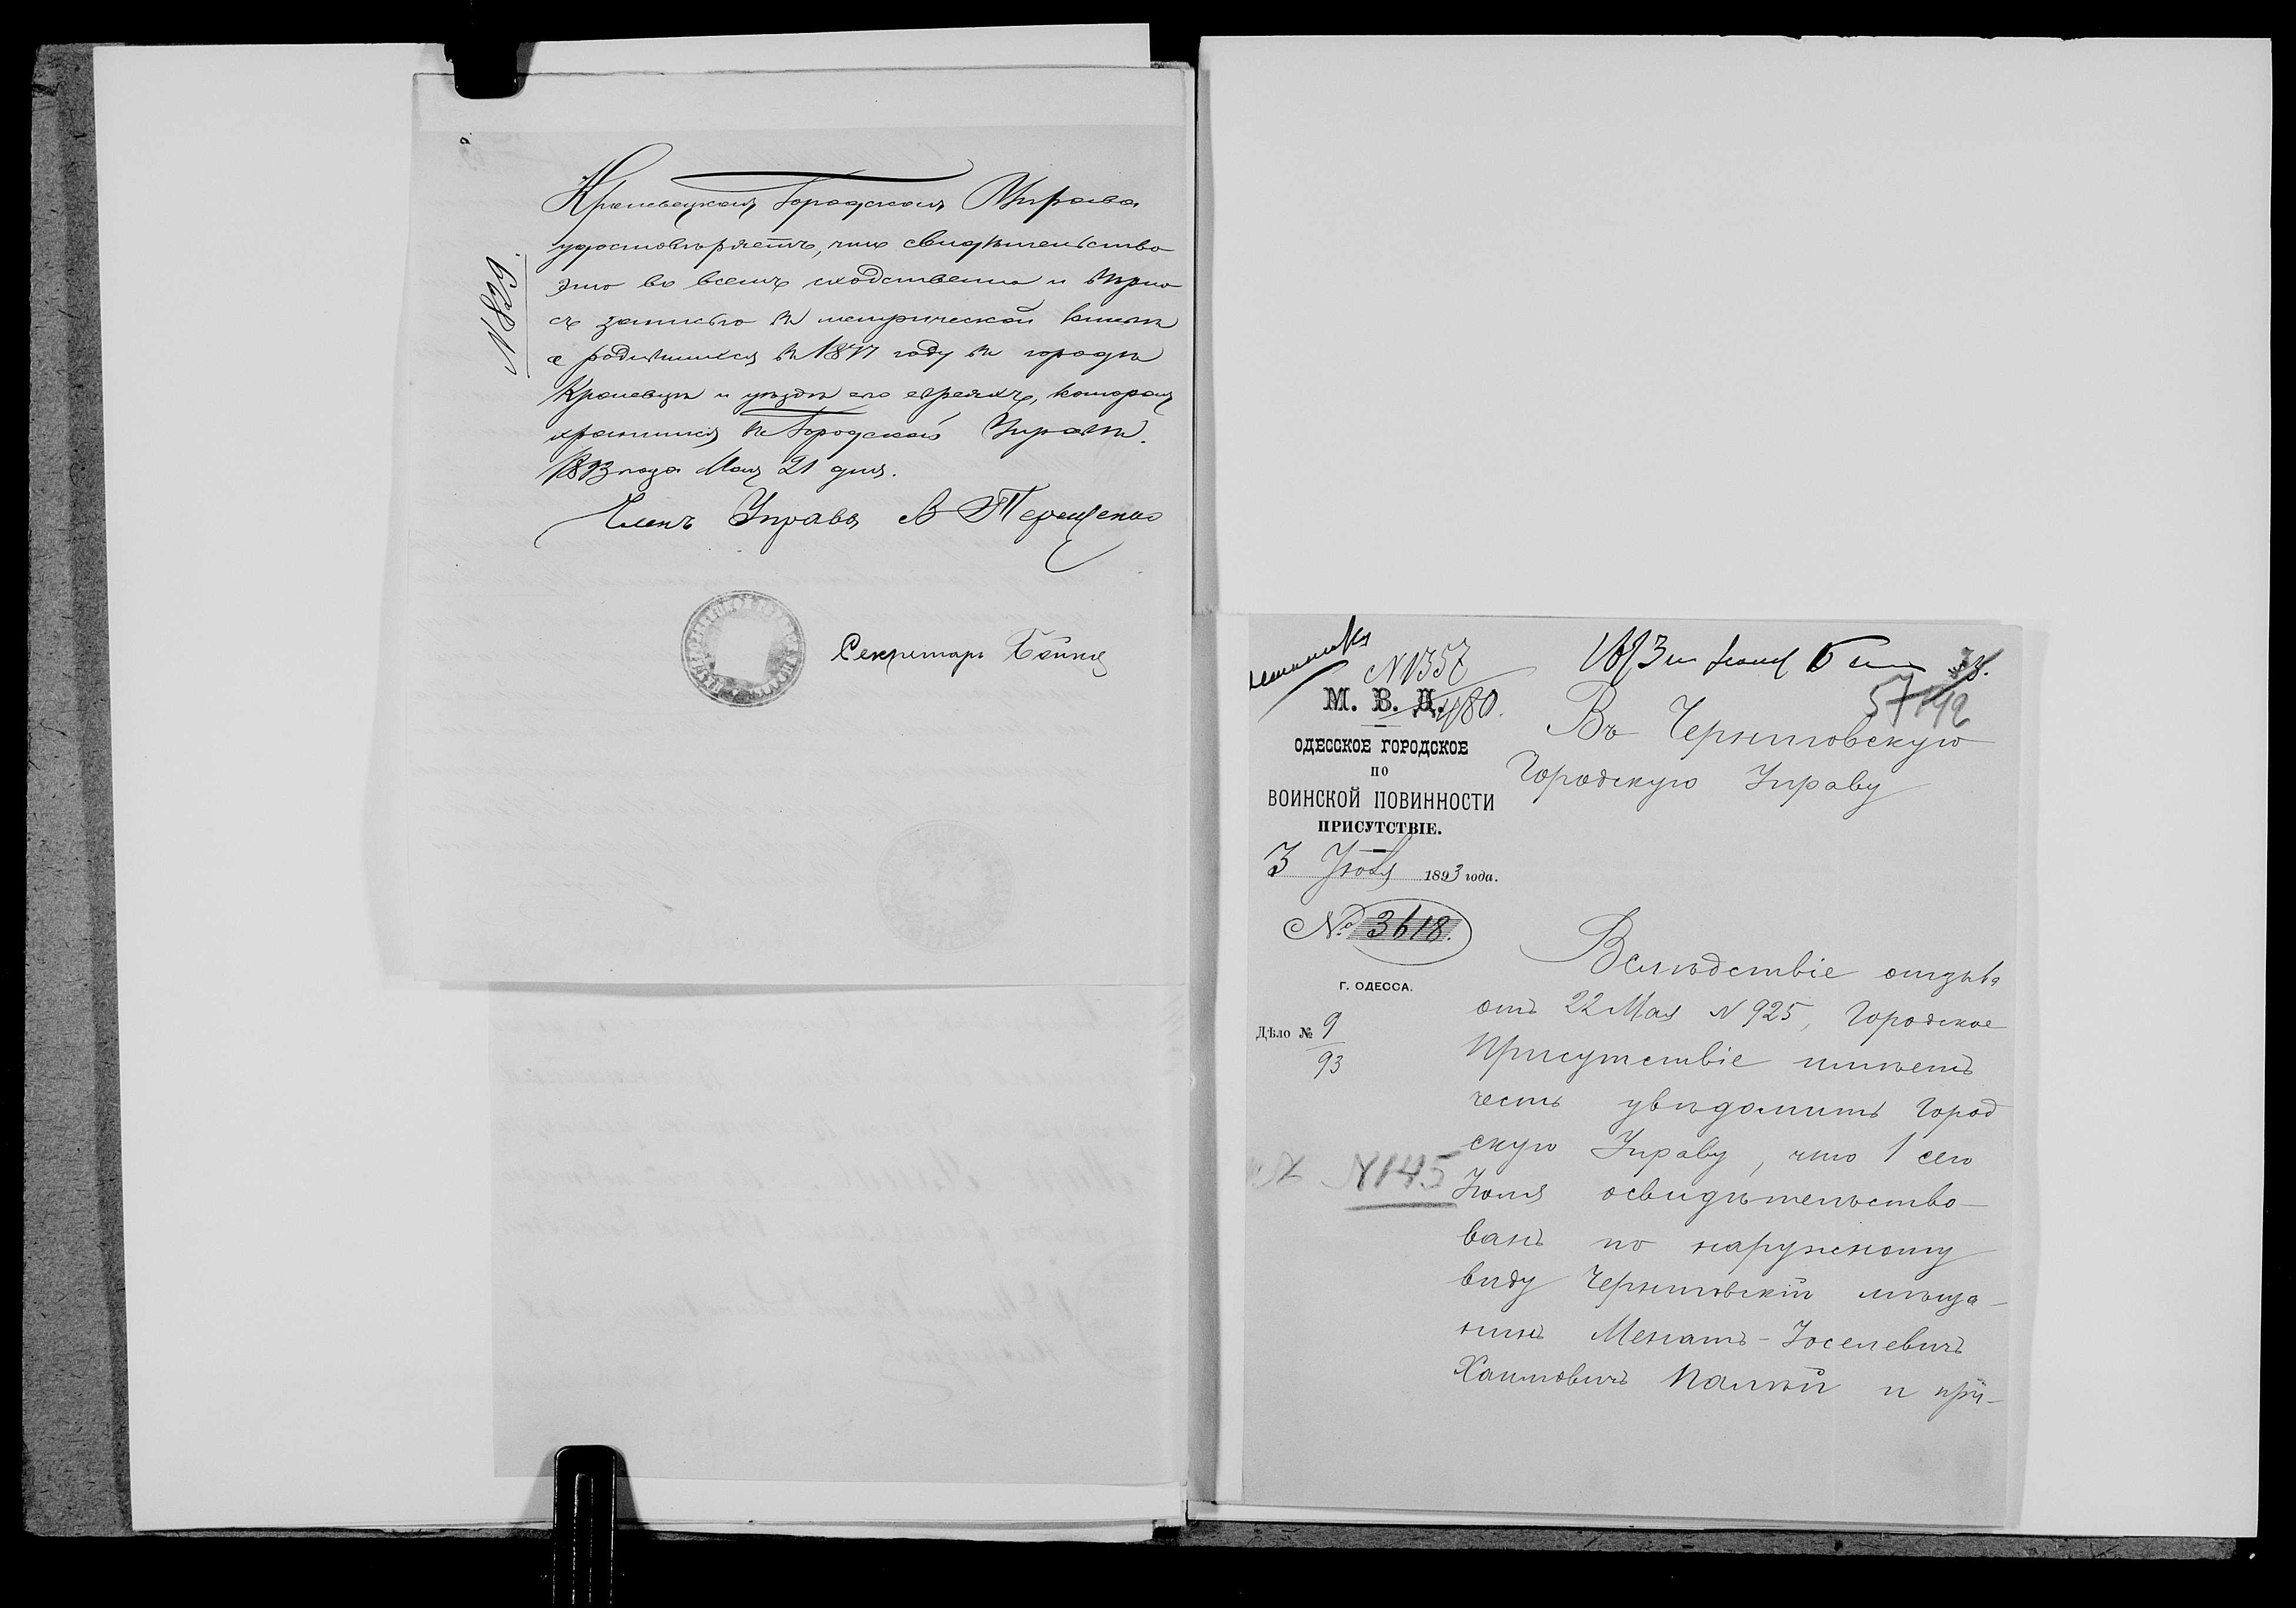 Кролевецкая Городская Управа
удостовѣряетъ, что свидѣтельство
это во всемъ сходственно и вѣрно
съ записью въ метрической книгѣ
о родившихся въ 1871 году въ городѣ
Кролевцѣ и уѣздѣ его евреяхъ, которая
хранится въ Городской Управѣ.
1893 года Мая 21 дня.
Членъ Управы В Терещенко
Секретарь
N 839.
N 1357
480.
М. В. Д.
ОДЕССКОЕ ГОРОДСКОЕ
ПО
ВОИНСКОЙ ПОВИННОСТИ
ПРИСУТСТВІЕ.
3 Іюля 1893 года.
№ 3618.
Г. ОДЕССА.
Дѣло № 9
93
N 145
1893
57
Въ Черниговскую
Городскую Управу
Вслѣдствіе отзыва
отъ 22 Мая N 925, Городское
Присутствіе имѣетъ
честь увѣдомить Город
скую Управу, что 1 сего
Іюля освидѣтельство-
ванъ по наружному
виду Черниговскій мѣща-
нинъ Іоселевичъ
Хаимовичъ и при-